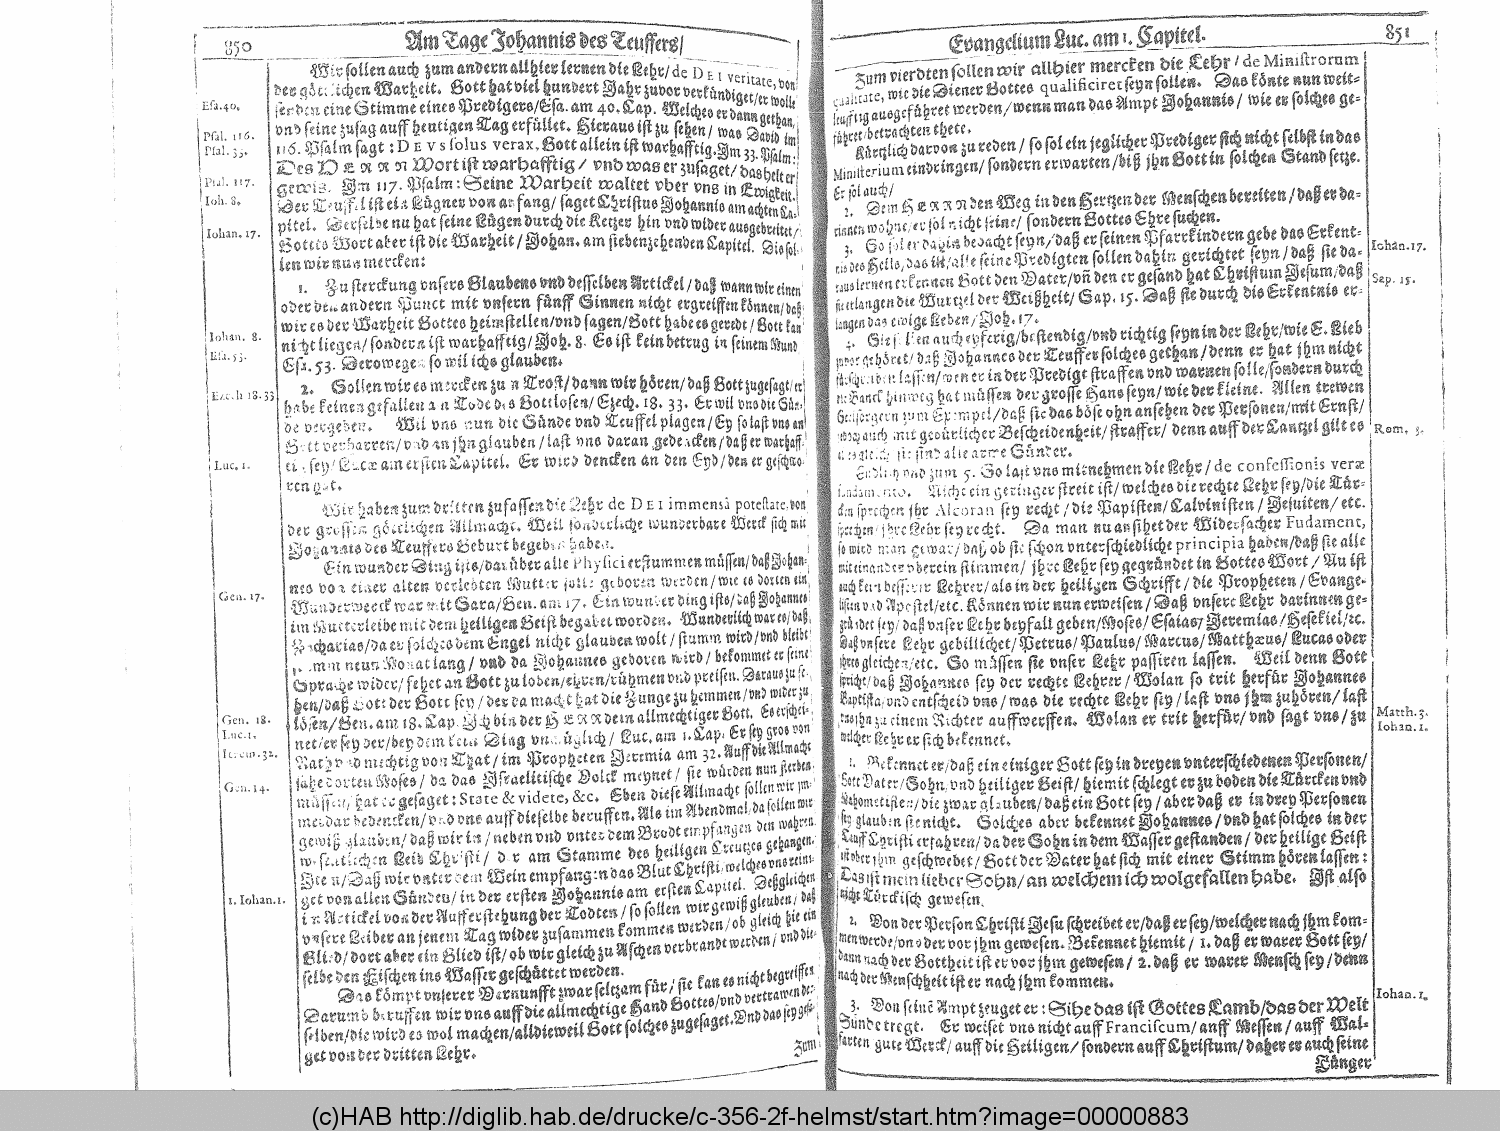 850
Am Tage Johannis des Teuffers/
Wir sollen auch zum andern allhier lernen die Lehr/ de DEI veritate, von
der göttlichen Warheit. Gott hat viel hundert Jahr zuvor verkündiget/ er wolle
senden eine Stimme eines Predigers/ Esa. am 40. Cap. Welches er dann gethan,
vnd seine zusag auff heutigen Tag erfüllet. Hieraus ist zu sehen/ was David im
116. Psalm sagt: DEVS solus verax, Gott allein ist warhafftig. Im 33. Psalm:
Des HERRN Wort ist warhafftig/ vnd was er zusaget/ das helt er
gewis. Im 117. Psalm: Seine Warheit waltet vber vns in Ewigkeit.
Der Teuffel ist ein Lügner von anfang/ saget Christus Johannis am achten Ca-
pitel. Derselbe nu hat seine Lügen durch die Ketzer hin vnd wider ausgebreitet/
Gottes Wort aber ist die Warheit/ Johan. am siebenzehenden Capitel. Dis sol-
len wir nun mercken:
1. Zu sterckung vnsers Glaubens vnd desselben Artickel/ daß wann wir einen
oder den andern Punct mit vnsern fünff Sinnen nicht ergreiffen können/ daß
wir es der Warheit Gottes heimstellen/ vnd sagen/ Gott habe es geredt/ Gott kan
nicht liegen/ sondern ist warhafftig/ Joh. 8. Es ist kein betrug in seinem Mund
Esa. 53. Derowegen so wil ichs glauben.
2. Sollen wir es mercken zum Trost/ dann wir hören/ daß Gott zugesagt/ er
habe keinen gefallen am Tode des Gottlosen/ Ezech. 18. 33. Er wil vns die Sün-
de vergeben. Wil vns nun die Sünde vnd Teuffel plagen/ Ey so last vns an
Gott verharren/ vnd an jhn glauben/ last vns daran gedencken/ daß er warhaff-
tig sey/ Lucæ am ersten Capitel. Er wird dencken an den Eyd/ den er geschwo-
ren hat.
Wir haben zum dritten zu fassen die Lehr de DEI immensa potestate, von
der grossen göttlichen Allmacht. Weil sonderliche wunderbare Werck sich mit
Johannis des Teuffers Geburt begeben haben.
Ein wunder Ding ists/ darüber alle Physici erstummen müssen/ daß Johan-
nes von einer alten verlebten Mutter solle geboren werden/ wie es dorten ein
Wunderwerck war mit Sara/ Gen. am 17. Ein wunder ding ists/ daß Johannes
im Mutterleibe mit dem heiligen Geist begabet worden. Wunderlich war es/ daß
Zacharias/ da er solches dem Engel nicht glauben wolt/ stumm wird/ vnd bleibt
neun Monat lang/ vnd da Johannes geboren wird/ bekommet er seine
Sprache wider/ fehet an Gott zu loben/ ehren/ rühmen vnd preisen. Daraus zu se-
hen/ daß Gott der Gott sey/ der da macht hat die Zunge zu hemmen/ vnd wider zu
lösen/ Gen. am 18. Cap. Ich bin der HERR dein allmechtiger Gott. Es erschei-
net/ er sey der/ bey dem kein Ding vnmüglich/ Luc. am 1. Cap. Er sey gros von
Rath vnd mechtig von That/ im Propheten Jeremia am 32. Auff die Allmacht
sahe dorten Moses/ da das Israelitische Volck meynet/ sie würden nun sterben
müssen/ hat er gesaget: State & videte, &c. Eben diese Allmacht sollen wir jm-
merdar bedencken/ vnd vns auff dieselbe beruffen. Als im Abendmal/ da sollen wir
gewiß glauben/ daß wir in/ neben vnd vnter dem Brodt empfangen den wahren
wesentlichen Leib Christi/ der am Stamme des heiligen Creutzes gehangen.
Item/ Daß wir vnter dem Wein empfangen das Blut Christi/ welches vns reini-
get von allen Sünden/ in der ersten Johannis am ersten Capitel. Deßgleichen
im Artickel von der Aufferstehung der Todten/ so sollen wir gewiß gleuben/ daß
vnsere Leiber an jenem Tag wider zusammen kommen werden/ ob gleich hie ein
Glied/ dort aber ein Glied ist/ ob wir gleich zu Aschen verbrandt werden/ vnd die-
selbe den Fischen ins Wasser geschüttet werden.
Das kömpt vnserer Vernunfft zwar seltzam für/ sie kan es nicht begreiffen
Darumb beruffen wir vns auff die allmechtige Hand Gottes/ vnd vertrawen der-
selben/ die wird es wol machen/ alldieweil Gott solches zugesaget. Vnd das sey gesa-
get von der dritten Lehr.
Zum
Esa. 40.
Psal. 116.
Psal. 33.
Psal. 117.
Ioh. 8.
Iohan. 17.
Iohan. 8.
Esa. 53.
Ezech 18. 33
Luc. 1.
Gen. 17.
Gen. 18.
Luc. 1.
Ierem. 32.
Gen. 14.
1. Iohan. 1.
Evangelium Luc. am 1. Capitel.
851
Zum vierdten sollen wir allhier mercken die Lehr/ de Ministrorum
qualitate, wie die Diener Gottes qualificiret seyn sollen. Das könte nun weit-
leufftig ausgeführet werden/ wenn man das Ampt Johannis/ wie er solches ge-
führet/ betrachten thete.
Kürtzlich darvon zu reden/ so sol ein jeglicher Prediger sich nicht selbst in das
Ministerium eindringen/ sondern erwarten/ biß jhn Gott in solchen Stand setze.
Er sol auch/
2. Dem HERRN den Weg in den Hertzen der Menschen bereiten/ daß er da-
rinnen wohne/ er sol nicht seine/ sondern Gottes Ehre suchen.
3. So sol er dahin bedacht seyn/ daß er seinen Pfarrkindern gebe das Erkent-
nis des Heils, das ist/ alle seine Predigten sollen dahin gerichtet seyn/ daß sie da-
raus lernen erkennen Gott den Vater/ vñ den er gesand hat Christum Jesum/ daß
sie erlangen die Wurtzel der Weißheit/ Sap. 15. Daß sie durch die Erkentnis er-
langen das ewige Leben/ Joh. 17.
4. Sie sollen auch eyferig/ bestendig/ vnd richtig seyn in der Lehr/ wie E. Lieb
zuvor gehöret/ daß Johannes der Teuffer solches gethan/ denn er hat jhm nicht
fürschreiben lassen/ wen er in der Predigt straffen vnd warnen solle/ sondern durch
die Banck hinweg hat müssen der grosse Hans seyn/ wie der kleine. Allen trewen
Seelsorgern zum Exempel/ daß sie das böse ohn ansehen der Personen/ mit Ernst/
wie auch mit gebürlicher Bescheidenheit/ straffen/ denn auff der Cantzel gilt es
sie sind alle arme Sünder.
Endlich vnd zum 5. So last vns mitnehmen die Lehr/ de confessionis veræ
fundamento. Nicht ein geringer streit ist/ welches die rechte Lehr sey/ die Tür-
cken sprechen jhr Alcoran sey recht/ die Papisten/ Calvinisten/ Jesuiten/ etc.
sprechen/ jhre Lehr sey recht. Da man nu ansihet der Widersacher Fudament,
so wird man gewar/ daß, ob sie schon vnterschiedliche principia haben/ daß sie alle
miteinander vberein stimmen/ jhre Lehr sey gegründet in Gottes Wort/ Nu ist
auch kein besserer Lehrer/ als in der heiligen Schrifft/ die Propheten/ Evange-
listen vnd Apostel/ etc. Können wir nun erweisen/ Daß vnsere Lehr darinnen ge-
gründet sey/ daß vnser Lehr beyfall geben/ Moses/ Esaias/ Jeremias/ Hesekiel/ &c.
Daß vnsere Lehr gebillichet/ Petrus/ Paulus/ Marcus/ Matthæus/ Lucas oder
jhres gleichen/ etc. So müssen sie vnser Lehr passiren lassen. Weil denn Gott
spricht/ daß Johannes sey der rechte Lehrer/ Wolan so trit herfür Johannes
Baptista/ vnd entscheid vns/ was die rechte Lehr sey/ last vns jhm zuhören/ last
vns jhn zu einem Richter auffwerffen. Wolan er trit herfür/ vnd sagt vns/ zu
welcher Lehr er sich bekennet.
1. Bekennet er/ daß ein einiger Gott sey in dreyen vnterschiedenen Personen/
Gott Vater/ Sohn, vnd heiliger Geist/ hiemit schlegt er zu boden die Türcken vnd
Mahometisten/ die zwar glauben/ daß ein Gott sey/ aber daß er in drey Personen
sey glauben sie nicht. Solches aber bekennet Johannes/ vnd hat solches in der
Tauff Christi erfahren/ da der Sohn in dem Wasser gestanden/ der heilige Geist
ist ober jhm geschwebet/ Gott der Vater hat sich mit einer Stimm hören lassen:
Das ist mein lieber Sohn/ an welchem ich wolgefallen habe. Ist also
nicht Türckisch gewesen.
2. Von der Person Christi Jesu schreibet er/ daß er sey/ welcher nach jhm kom-
men werde/ vnd der vor jhm gewesen. Bekennet hiemit/ 1. daß er warer Gott sey/
dann nach der Gottheit ist er vor jhm gewesen/ 2. daß er warer Mensch sey/ denn
nach der Menschheit ist er nach jhm kommen.
3. Von seinē Ampt zeuget er: Sihe das ist Gottes Lamb/ das der Welt
Sünde tregt. Er weiset vns nicht auff Franciscum/ auff Messen/ auff Wal-
farten gute Werck/ auff die Heiligen/ sondern auff Christum/ daher es auch seine
Jünger
Iohan. 17.
Sap. 15.
Rom. 3.
Matth. 3.
Iohan. 1.
Iohan. 1.
(c)HAB http://diglib.hab.de/drucke/c-356-2f-helmst/start.htm?image=00000883